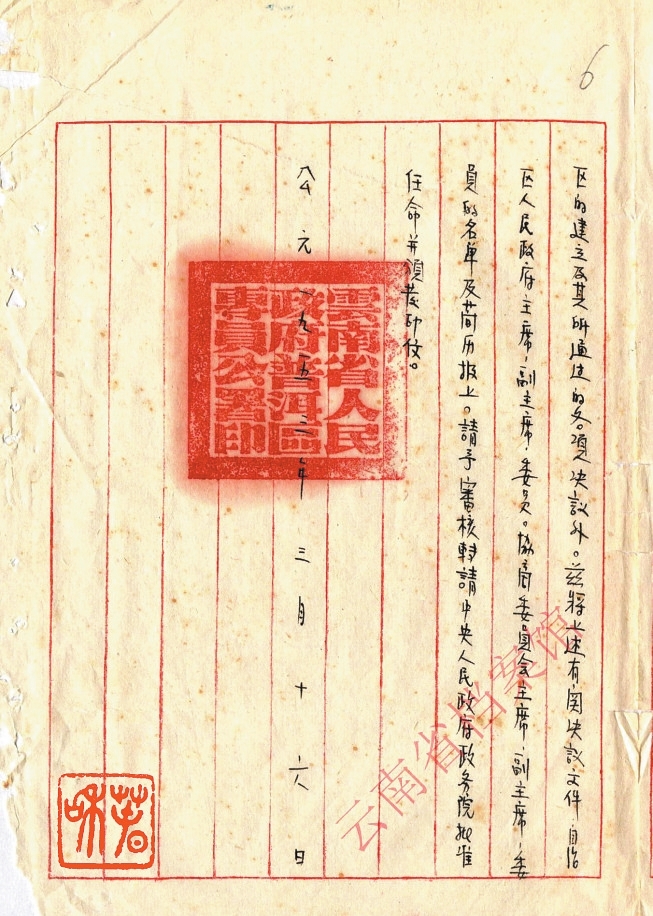 6
区的建立及其所通过的各項决議外。兹將上述有関决議文件.自治
区人民政府主席.副主席.委员。协商委員会主席.副主席.委
員的名单及简历报上。請予審核轉請中央人民政府政务院批准
任命并頒發印信。
公元一九五三年三月十六日
雲南省人民
政府普洱區
專員公署印
云南省档案馆